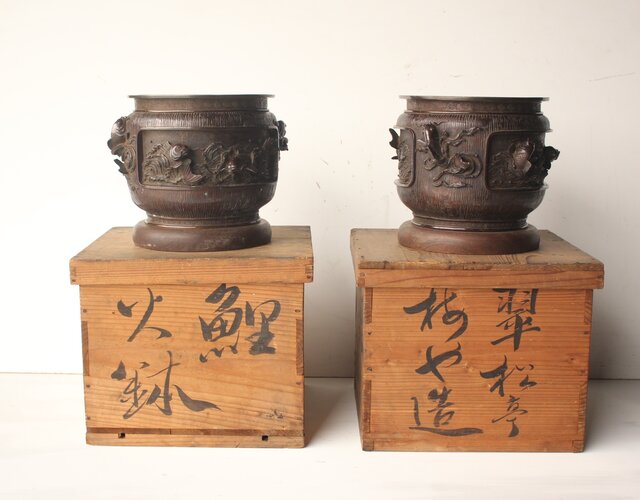 鯉
火鉢
翠松亭
梅や造